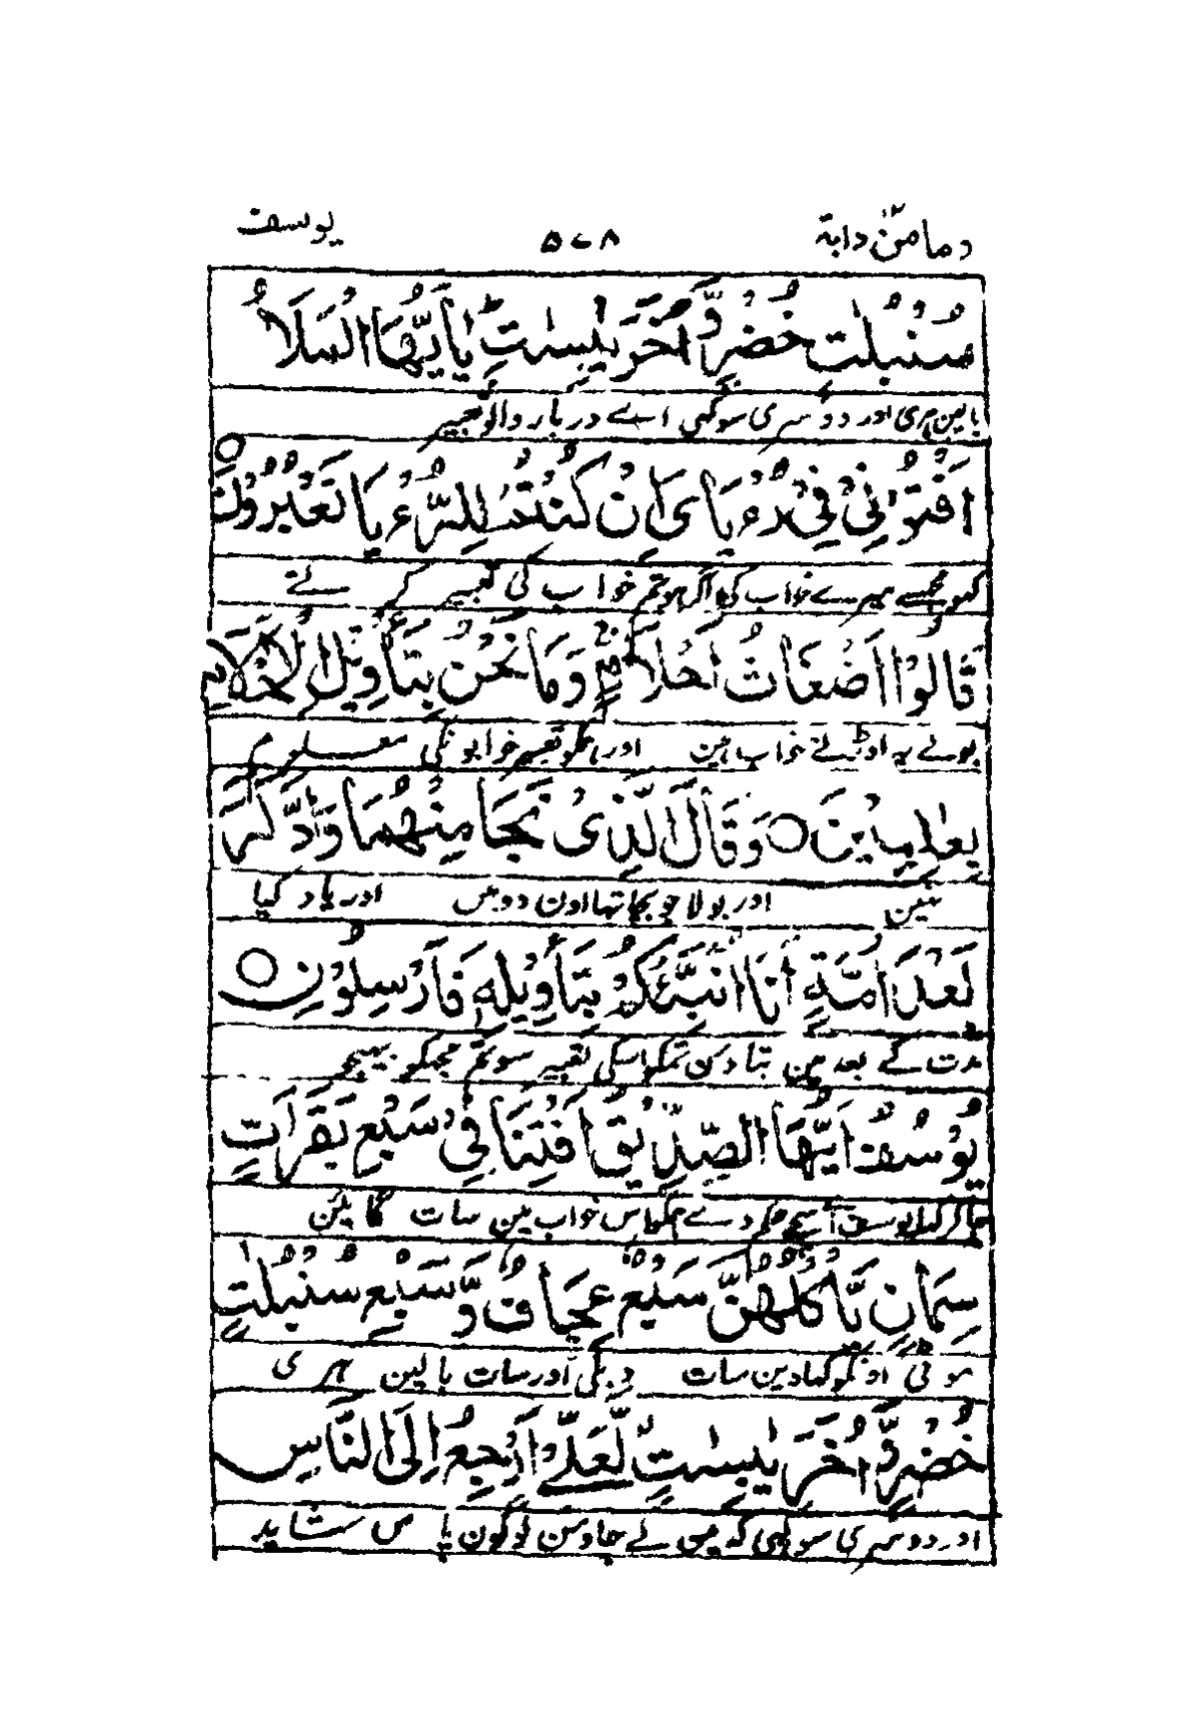 وما من دابة ۵۷۸ يوسف
سُنْۢبُلٰتٍ خُضْرٍ وَّاُخَرَ يٰبِسٰتٍ ؕ يٰۤاَيُّهَا الْمَلَاُ
بالین ہری اور دوسری سوکھی اے دربار والو تعبیر
اَفْتُوْنِيْ فِيْ رُءْيَايَ اِنْ كُنْتُمْ لِلرُّءْيَا تَعْبُرُوْنَ ○
کہو مجھسے میرے خواب کی اگر ہو تم خواب کی تعبیر کرتے
قَالُوْۤا اَضْغَاثُ اَحْلَامٍ ۚ وَمَا نَحْنُ بِتَاْوِيْلِ الْاَحْلَامِ
بولے یہ اوڑتے خواب ہین اور ہمکو تعبیر خوابونکی معلوم
بِعٰلِمِيْنَ ○ وَقَالَ الَّذِيْ نَجَا مِنْهُمَا وَادَّكَرَ
نہین اور بولا جو بچا تہا اون دو مین اور یاد کیا
بَعْدَ اُمَّةٍ اَنَا اُنَبِّئُكُمْ بِتَاْوِيْلِهٖ فَاَرْسِلُوْنِ ○
مدت کے بعد مین بتادون تمکو اسکی تعبیر سو تم مجھکو بھیجو
يُوْسُفُ اَيُّهَا الصِّدِّيْقُ اَفْتِنَا فِيْ سَبْعِ بَقَرَاتٍ
جاکر کہا یوسف اے سچے حکم دے ہمکو اس خواب مین سات گاین
سِمَانٍ يَّاْكُلُهُنَّ سَبْعٌ عِجَافٌ وَّسَبْعِ سُنْۢبُلٰتٍ
موٹی اونکو کہادین سات دبلی اور سات بالین ہری
خُضْرٍ وَّاُخَرَ يٰبِسٰتٍ لَّعَلِّيْۤ اَرْجِعُ اِلَى النَّاسِ
اور دوسری سوکھی کہ مین لے جاون لوگون پاس شاید